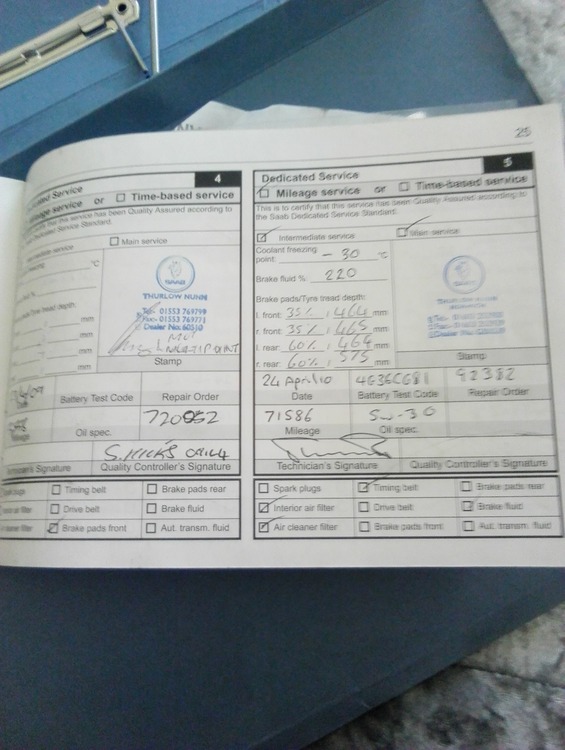 25
4
Service
Mileage service or Time-based service
this service has been Quality Assured according to
Dedicated Service Standard.
Main service
service
°C
%
Tyre tread depth:
mm
mm
mm
mm
SAAB
THURLOW NUNN
Tel: 01553 769799
Fax: 01553 769771
Dealer No: 60510
MULTIPOINT
Stamp
Battery Test Code Repair Order
720052
Mileage Oil spec.
S. HICKS
Technician's Signature Quality Controller's Signature
plugs Timing belt Brake pads rear
air filter Drive belt Brake fluid
cleaner filter Brake pads front Aut. transm. fluid
5
Dedicated Service
Mileage service or Time-based service
This is to certify that this service has been Quality Assured according to
the Saab Dedicated Service Standard.
Intermediate service Main service
Coolant freezing
point: -30 °C
Brake fluid % 220
Brake pads/Tyre tread depth:
l. front: 35% / 464 mm
r. front: 35% / 465 mm
l. rear: 60% / 464 mm
r. rear: 60% / 575 mm
THURLOW NUNN
Stamp
24 April 10 4G36CG81 92382
Date Battery Test Code Repair Order
71586 5W-30
Mileage Oil spec.
Technician's Signature Quality Controller's Signature
Spark plugs Timing belt Brake pads rear
Interior air filter Drive belt Brake fluid
Air cleaner filter Brake pads front Aut. transm. fluid